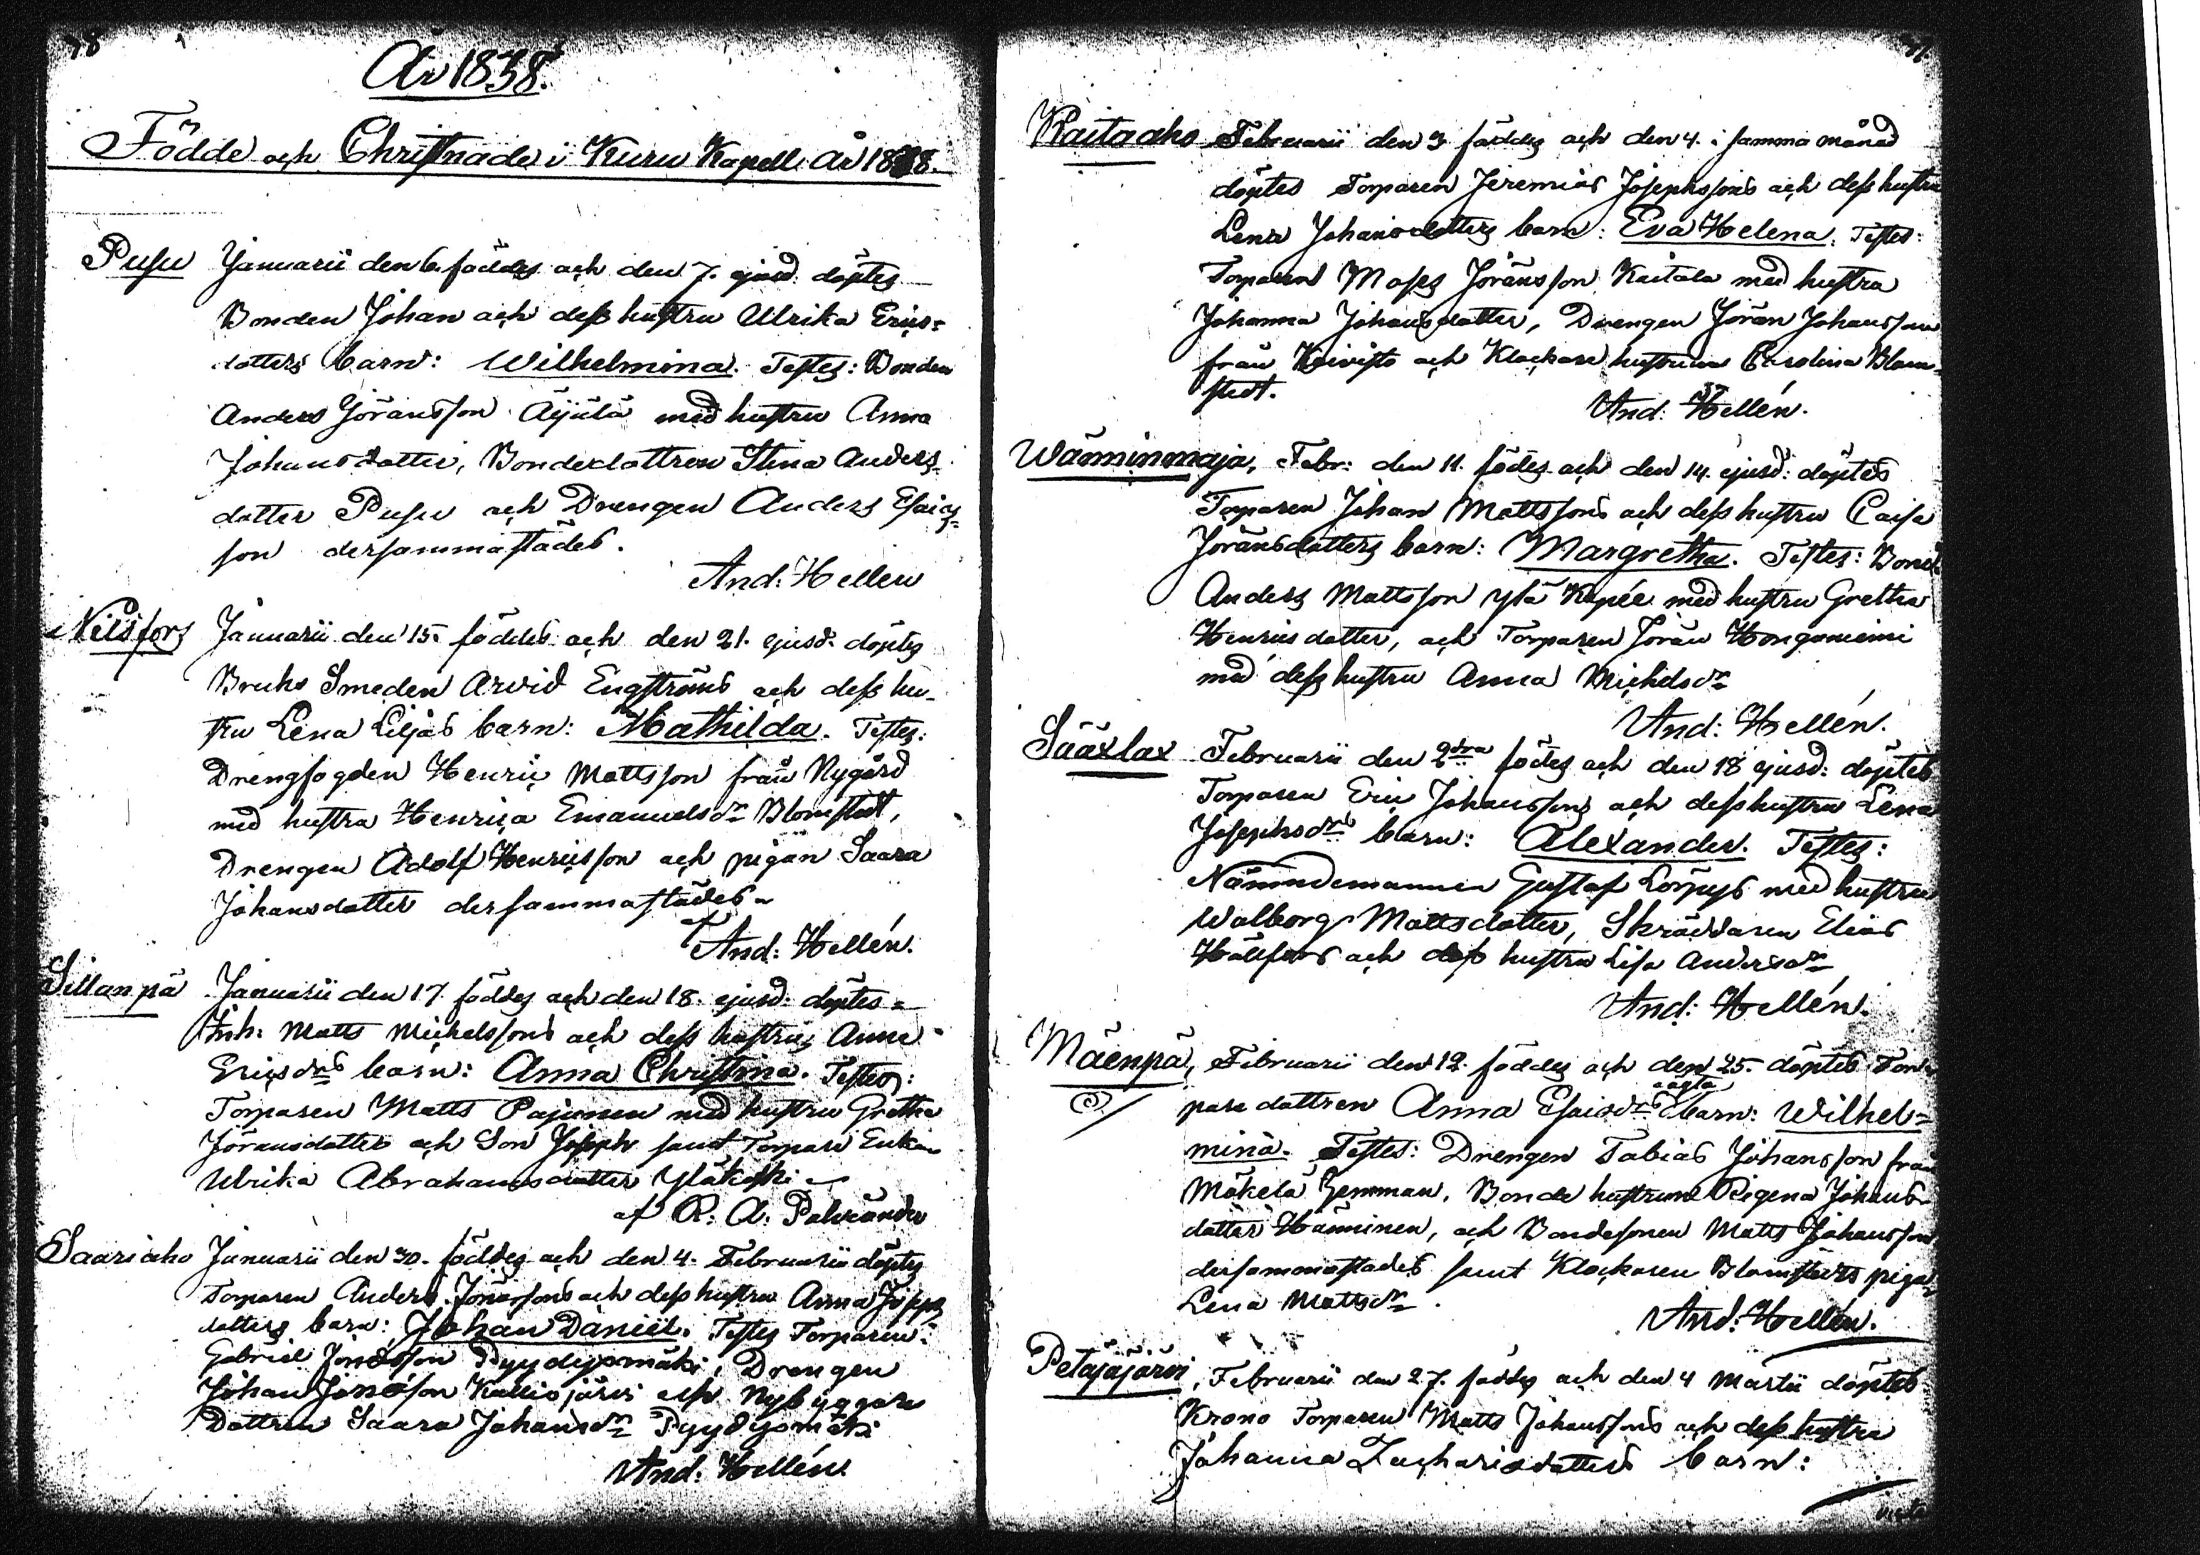 78
År 1838.
Födde och Christnade i Kuru Kapell År 1838.
Pusu Januarii den 6. föddes och den 7. ejusd. döptes
Bonden Johan och dess hustru Ulrika Erics-
dotters barn: Wilhelmina. Testes: Bonden
Anders Jöransson Äijälä med hustru Anna
Johansdotter, Bondedottren Stina Anders-
dotter Pusu och Drengen Anders Esaias-
son dersammastädes.
And: Hellen
Nilsfors Januarii den 15. föddes och den 21. ejusd. döptes
Bruks Smeden Arvid Engströms och dess hu-
stru Lena Liljas barn: Mathilda. Testes:
Drengfogden Henric Mattsson från Nygård
med hustru Henrica Emanuelsdr Blomstedt,
Drengen Adolf Henricsson och pigan Saara
Johansdotter dersammastädes
af And: Hellén.
Sillanpä Januarii den 17 föddes och den 18. ejusd. döptes
Inh. Matts Michelssons och dess hustrus Anna
Ericsdrs barn: Anna Christina. Testes:
Torparen Matts Pajunen med hustru Gretha
Jöransdotter och Son Joseph samt Torpare Enkan
Ulrika Abrahamsdotter Yläkoski
af R. A. Palvänder
Saariaho Januarii den 30. föddes och den 4. Februarii döptes
Torparen Anders Jönssons och dess hustru Anna Josephs
dotters barn: Johan Daniel. Testes Torparen
Gabriel Jönsson Pyydysmäki, Drengen
Johan Jönsson Kalliojärvi och Nybyggare
Dottren Saara Johansdr Pyydysmäki
And. Hellén.
Kaitaaho Februarii den 3 föddes och den 4. i samma månad
döptes Torparen Jeremias Josephssons och dess hustru
Lena Johansdotters barn: Eva Helena. Testes:
Torparen Moses Jöransson Kaitala med hustru
Johanna Johansdotter, Drengen Jöran Johansson
från Koivisto och Klockare hustrun Carolina Blom-
stedt.
And: Hellén.
Wänninmaja, Febr: den 11. föddes och den 14. ejusd: döptes
Torparen Johan Mattssons och dess hustru Caisa
Jöransdotters barn: Margretha. Testes: Bond.
Anders Mattsson Ylä Kapée med hustru Gretha
Henricsdotter, och Torparen Jöran Hongoniemi
med dess hustru Anna Michelsdr
And: Hellén.
Sääxlax Februarii den 2dra föddes och den 18 ejusd: döptes
Torparen Eric Johanssons och dess hustru Lena
Josephsdrs barn: Alexander. Testes:
Nämndemannen Gustaf Lörpys med hustru
Walborg Mattsdotter, Skräddaren Elias
Hällfors och dess hustru Lisa Andersdr
And: Hellén.
Mäenpä, Februarii den 12. föddes och den 25. döptes Tor-
pare dottren Anna Esaisdrs oägta barn: Wilhel-
mina. Testes: Drengen Tobias Johansson från
Mäkelä Hemman, Bonde hustrun Regena Johans-
dotter Hänninen, och Bondesonen Matts Johansson
dersammastädes samt Klockaren Blomstedts piga
Lena Mattsdr.
And. Hellén.
Petäjäjärvi, Februarii den 27. föddes och den 4 Martii döptes
Krono Torparen Matts Johanssons och dess hustru
Johanna Zachariædotters barn: